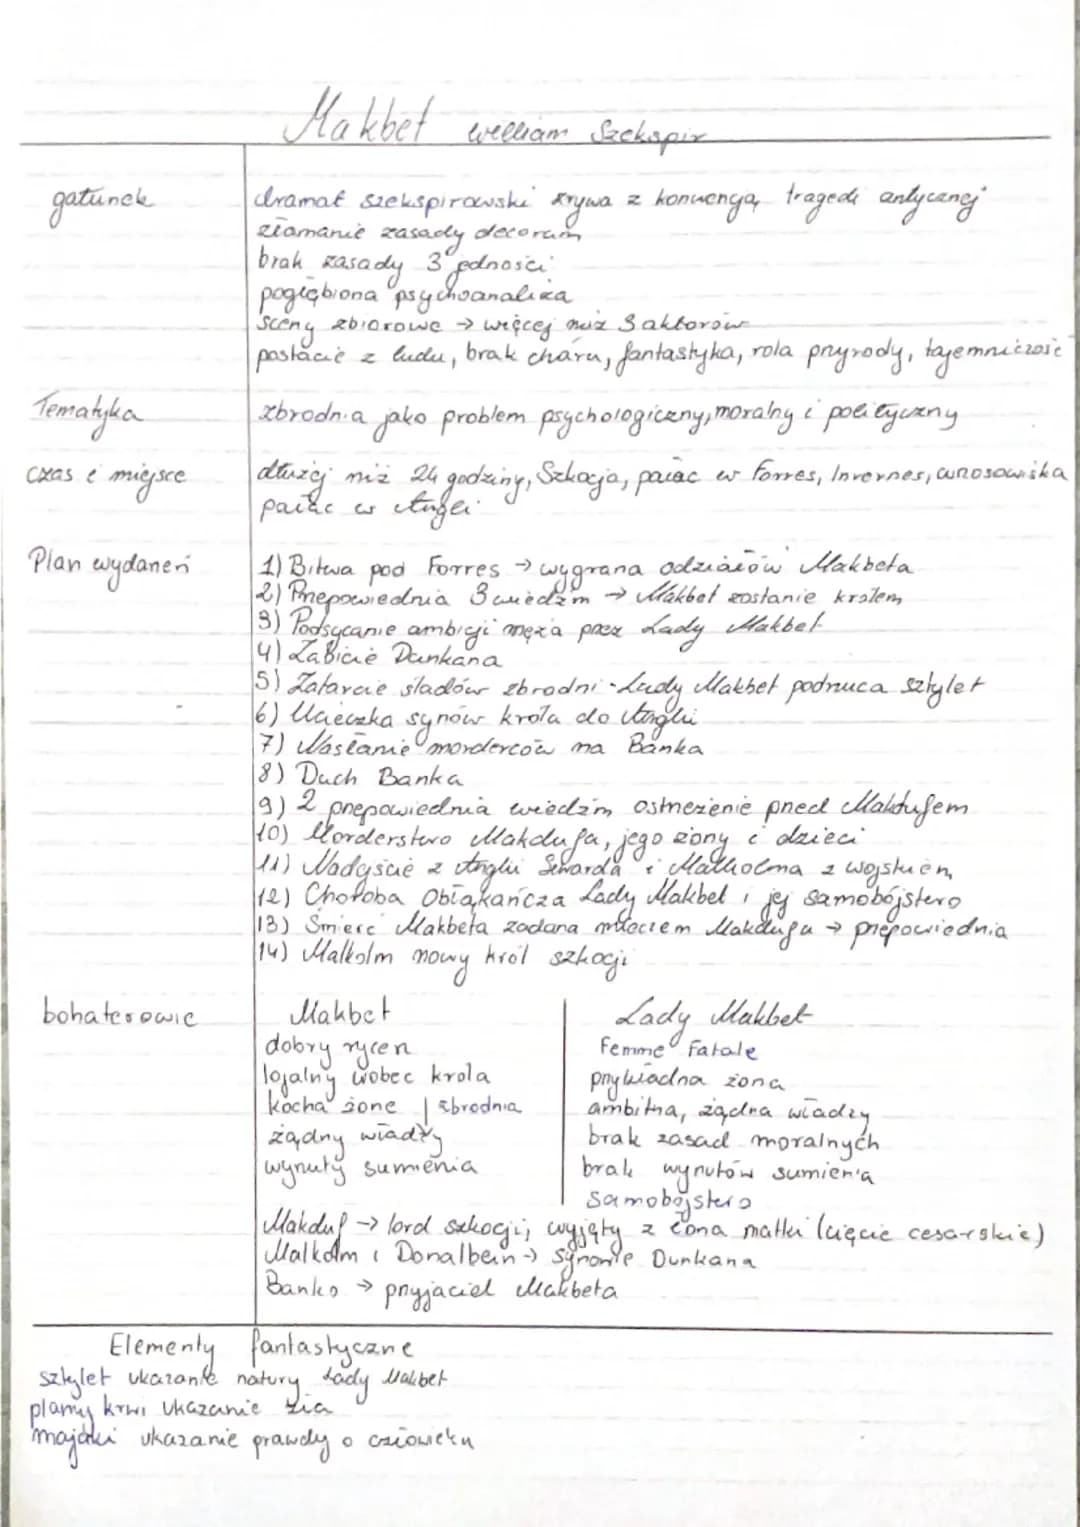 Makbet William Szekspir
gatunek
dramat szekspirowski zrywa z konwencją tragedi antycznej
złamanie zasady decorum
brak zasady 3 jedności
pogłębiona psychoanaliza
sceny zbiorowe → więcej niż 3 aktorów
postacie z ludu, brak chóru, fantastyka, rola przyrody, tajemniczość
Tematyka
zbrodnia jako problem psychologiczny, moralny i polityczny
czas i miejsce
dłużej niż 24 godziny, Szkocja, pałac w Forres, Invernes, wrzosowiska
pałac w Anglii
Plan wydarzeń
1) Bitwa pod Forres → wygrana odziałów Makbeta
2) Przepowiednia 3 wiedźm → Makbet zostanie królem
3) Podsycanie ambicji męża przez Lady Makbet
4) Zabicie Dunkana
5) Zatarcie śladów zbrodni - Lady Makbet podrzuca sztylet
6) Ucieczka synów króla do Anglii
7) Nasłanie morderców na Banka
8) Duch Banka
9) 2 przepowiednia wiedźm ostrzeżenie przed Makdufem
10) Morderstwo Makdufa, jego żony i dzieci
11) Nadejście z Anglii Siwarda i Malkolma z wojskiem
12) Choroba Obłąkańcza Lady Makbet i jej samobójstwo
13) Śmierć Makbeta zadana mieczem Makdufa → przepowiednia
14) Malkolm nowy król szkocji
bohaterowie
Makbet
dobry rycerz
lojalny wobec króla
kocha żonę | zbrodnia
żądny władzy
wyrzuty sumienia
Lady Makbet
Femme Fatale
przykładna żona
ambitna, żądna władzy
brak zasad moralnych
brak wyrzutów sumienia
samobójstwo
Makduf → lord szkocji, wyjęty z łona matki (cięcie cesarskie)
Malkolm i Donalbein → synowie Dunkana
Banko → przyjaciel Makbeta
Elementy fantastyczne
sztylet ukazanie natury Lady Makbet
plamy krwi ukazanie zła
majaki ukazanie prawdy o człowieku